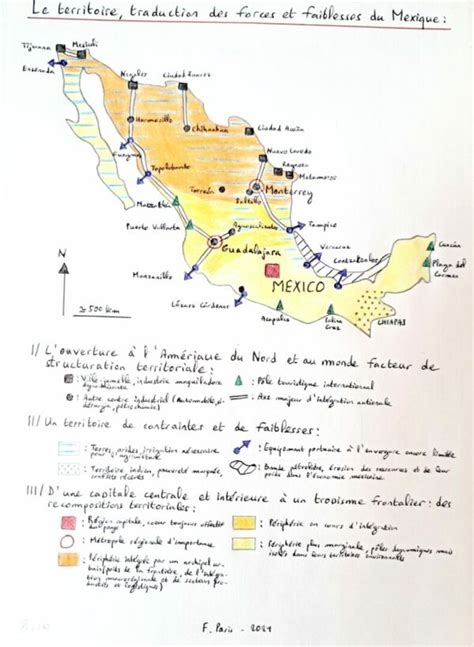 Le territoire, traduction des forces et faiblesses du Mexique :
Tijuana
Mexicali
Ensenada
Nogales
Ciudad Juarez
Hermosillo
Chihuahua
Ciudad Acuña
Guaymas
Nuevo Laredo
Reynosa
Matamoros
Topolobampo
Torreón
Monterrey
Saltillo
Mazatlán
Puerto Vallarta
Tampico
Guadalajara
Veracruz
Cancún
Playa del
Carmen
Manzanillo
MEXICO
Lázaro Cárdenas
Acapulco
CHIAPAS
N
500 km
I/ L'ouverture à l'Amérique du Nord et au monde facteur de
structuration territoriale :
: Ville-jumelle, industrie maquiladora
: Pôle touristique international
: Autre centre industriel (Automobile, sidérurgie, pétrochimie)
: Axe majeur d'intégration nationale
II/ Un territoire de contraintes et de faiblesses :
: Terres arides, irrigation nécessaire
pour l'agriculture
: Equipement portuaire à l'envergure encore limitée
: Territoire indien, pauvreté marquée,
conflits récents
: Bande pétrolière, érosion des ressources et de leur
poids dans l'économie mexicaine
III/ D'une capitale centrale et intérieure à un tropisme frontalier : des
recompositions territoriales :
: Région capitale, cœur toujours effectif
du pays
: Périphérie en cours d'intégration
: Métropole régionale d'importance
: Périphérie plus marginale, pôles dynamiques mais
isolés dans leurs territoires environnants
: Périphérie intégrée par un archipel
F. Paris - 2021